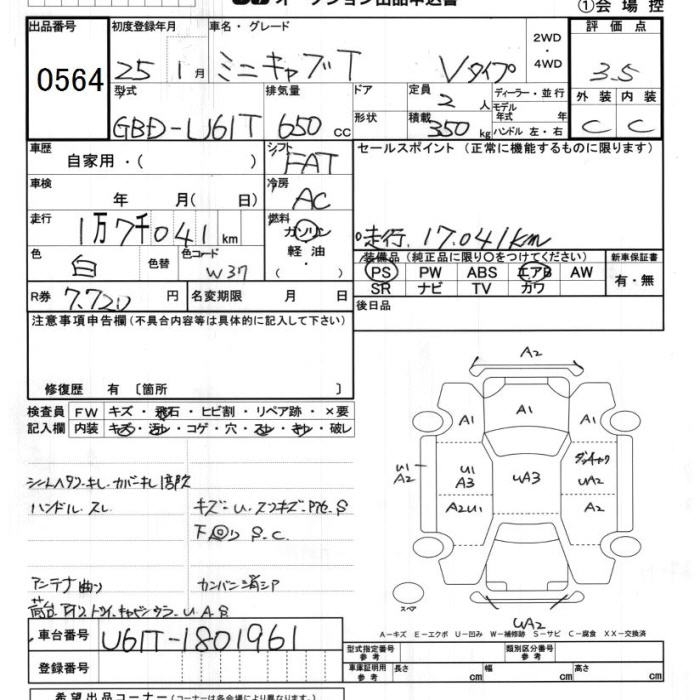 オークション出品申込書
①会場控
出品番号 初度登録年月 車名・グレード 2WD・4WD 評価点
0564 25 1月 ミニキャブT Vタイプ 3.5
型式 排気量 ドア 定員 2人 ディーラー・並行 外装 内装
GBD-U61T 650cc 形状 積載 350kg モデル年式 年 C C
ハンドル 左・右
車歴 シフト セールスポイント（正常に機能するものに限ります）
自家用・( ) FAT
車検 冷房
年 月(日) AC
走行 燃料
1万7千041km ガソリン・軽油・ 走行.17.041km
色 色替 色コード 装備品（純正品に限り〇をつけてください） 新車保証書
白 W37 PS PW ABS エアB AW 有・無
SR ナビ TV カワ
R券 7.720円 名変期限 月 日 後日品
注意事項申告欄（不具合内容等は具体的に記入して下さい）
修復歴 有〔箇所 〕
検査員 FW キズ・飛石・ヒビ割・リペア跡・×要
記入欄 内装 キズ・汚レ・コゲ・穴・スレ・キレ・破レ
ハンドル.スレ
アンテナ曲り
A2
A1 A1 A1
U1 A2 U1 A3 UA3 UA2
A2U1 A2
スペア
UA2
A－キズ E－エクボ U－凹み W－補修跡 S－サビ C－腐食 XX－交換済
車台番号 U61T-1801961
登録番号
型式指定番号 参考 類別区分番号 参考
車庫証明用 参考 長さ cm 幅 cm 高さ cm
希望出品コーナー（コーナーは各会場により異なります）